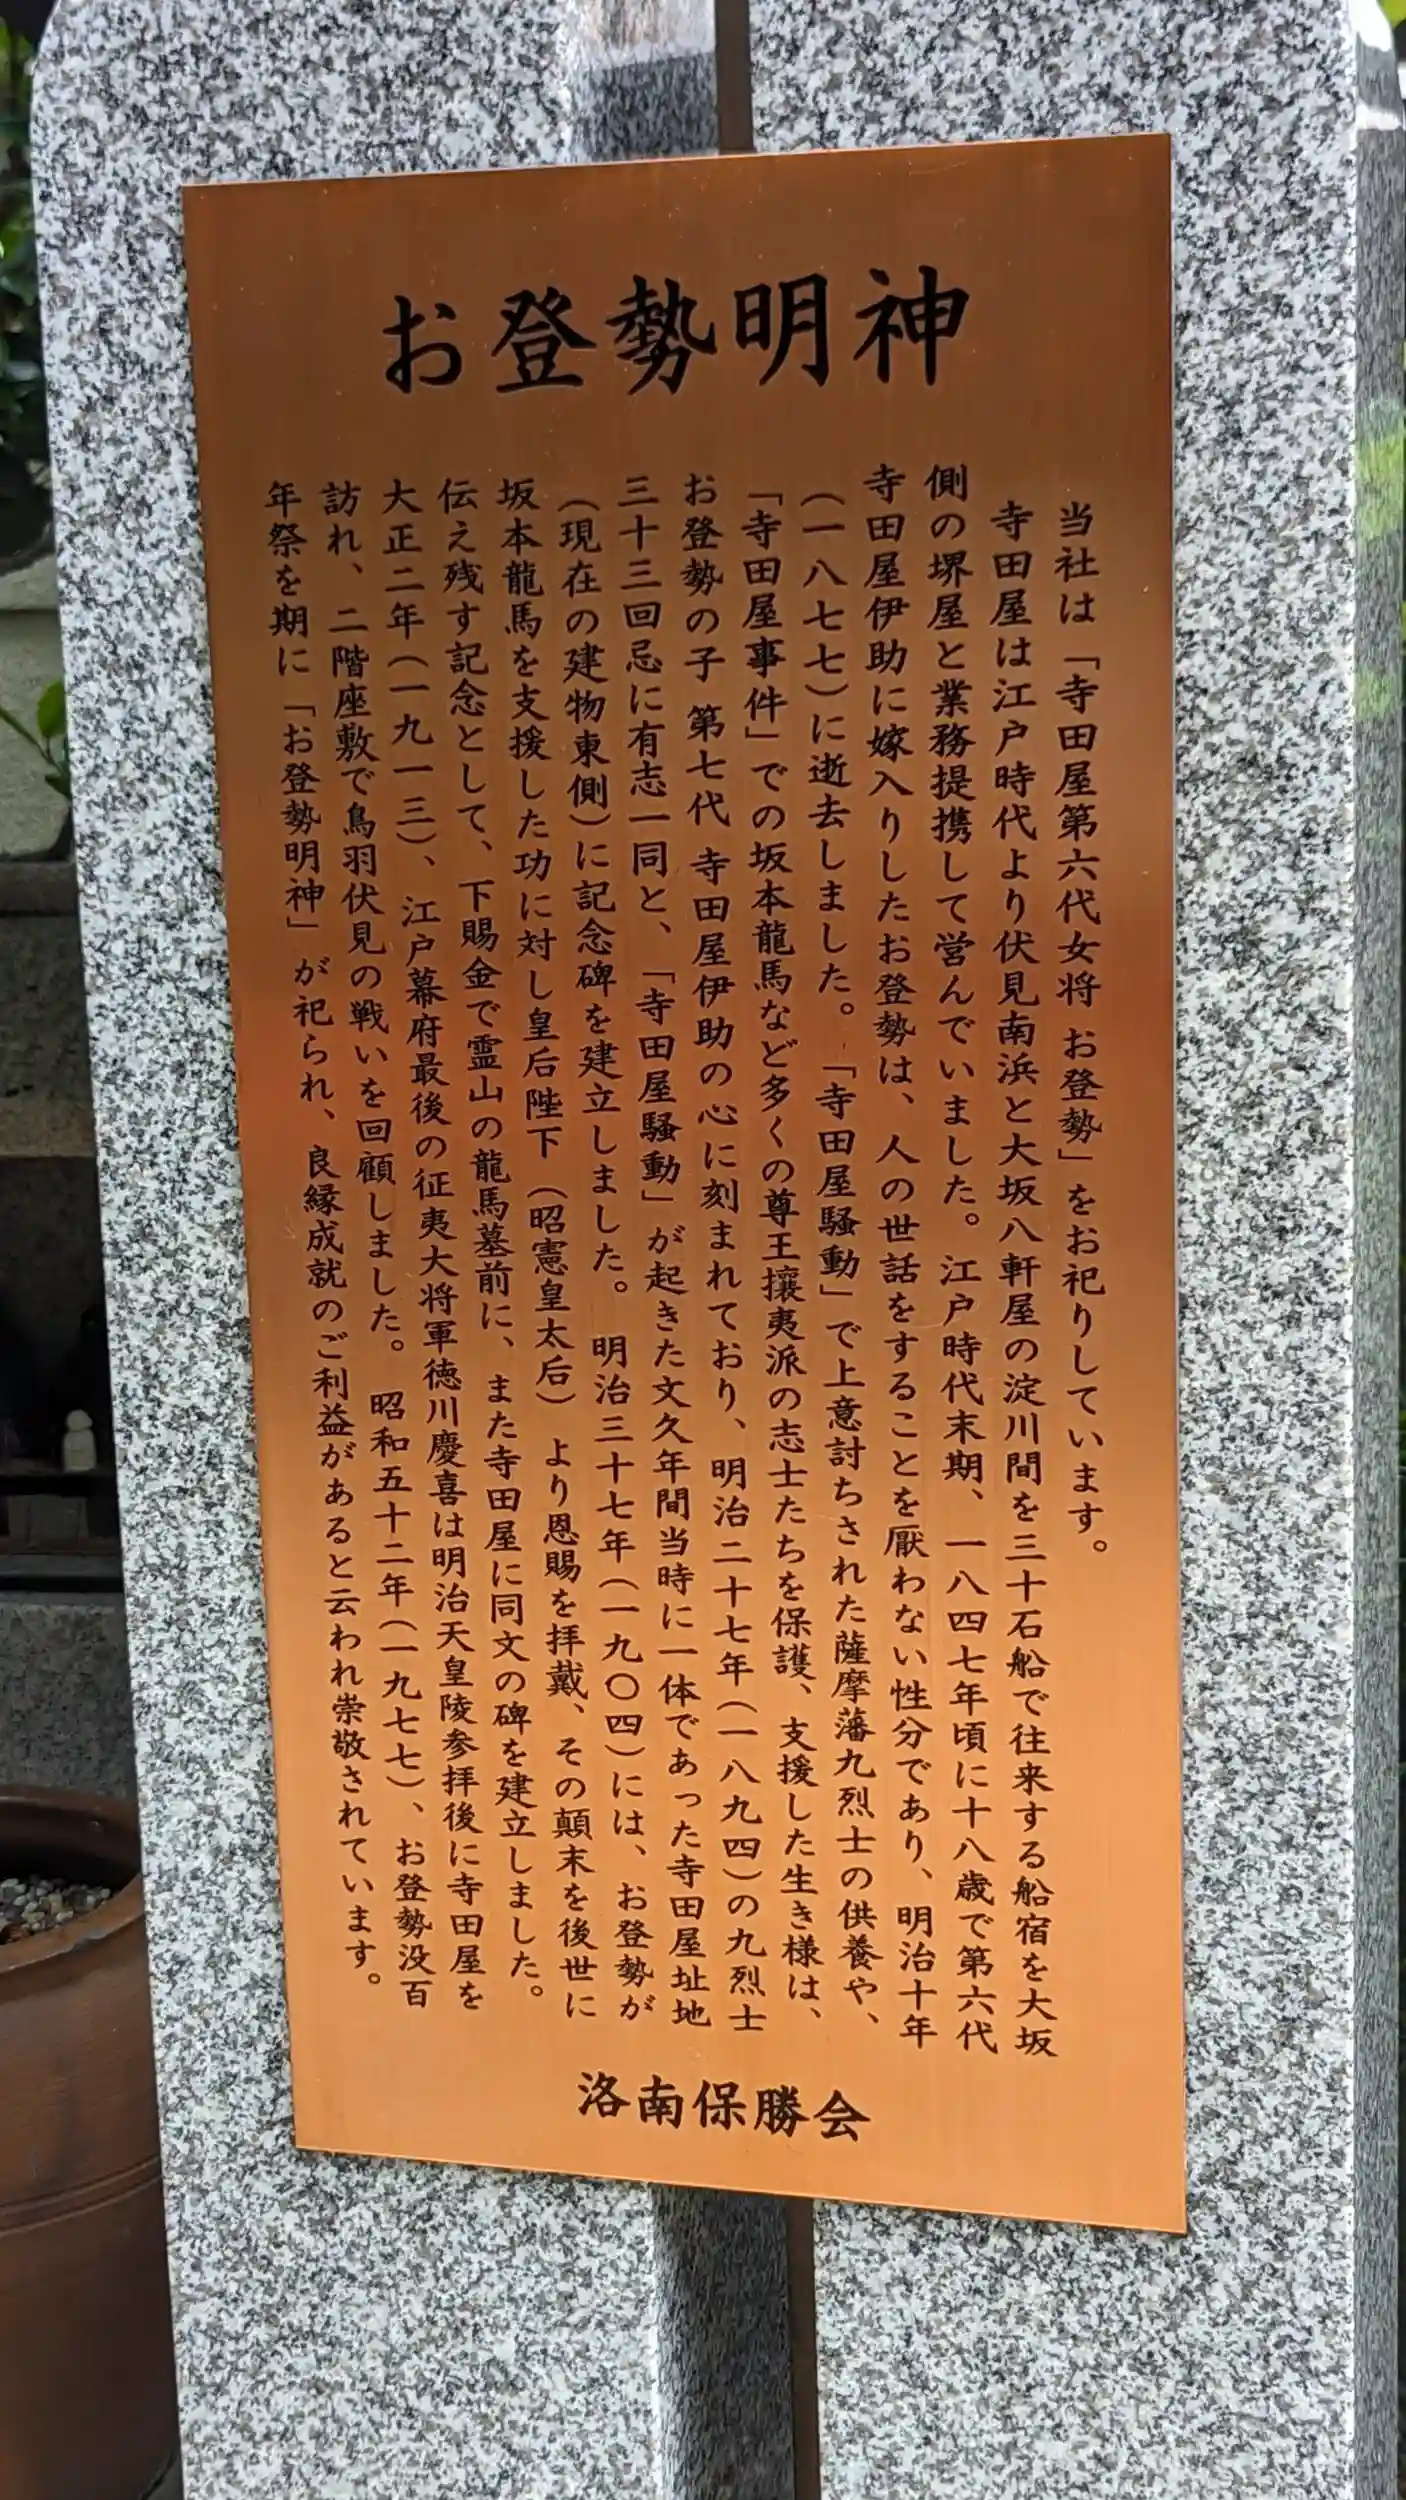 お登勢明神
当社は「寺田屋第六代女将 お登勢」をお祀りしています。
寺田屋は江戸時代より伏見南浜と大坂八軒屋の淀川間を三十石船で往来する船宿を大坂
側の堺屋と業務提携して営んでいました。江戸時代末期、一八四七年頃に十八歳で第六代
寺田屋伊助に嫁入りしたお登勢は、人の世話をすることを厭わない性分であり、明治十年
(一八七七)に逝去しました。「寺田屋騒動」で上意討ちされた薩摩藩九烈士の供養や、
「寺田屋事件」での坂本龍馬など多くの尊王攘夷派の志士たちを保護、支援した生き様は、
お登勢の子 第七代 寺田屋伊助の心に刻まれており、明治二十七年(一八九四)の九烈士
三十三回忌に有志一同と、「寺田屋騒動」が起きた文久年間当時に一体であった寺田屋址地
(現在の建物東側)に記念碑を建立しました。 明治三十七年(一九〇四)には、お登勢が
坂本龍馬を支援した功に対し皇后陛下(昭憲皇太后)より恩賜を拝戴、その顛末を後世に
伝え残す記念として、下賜金で霊山の龍馬墓前に、また寺田屋に同文の碑を建立しました。
大正二年(一九一三)、江戸幕府最後の征夷大将軍徳川慶喜は明治天皇陵参拝後に寺田屋を
訪れ、二階座敷で鳥羽伏見の戦いを回顧しました。 昭和五十二年(一九七七)、お登勢没百
年祭を期に「お登勢明神」が祀られ、良縁成就のご利益があると云われ崇敬されています。
洛南保勝会